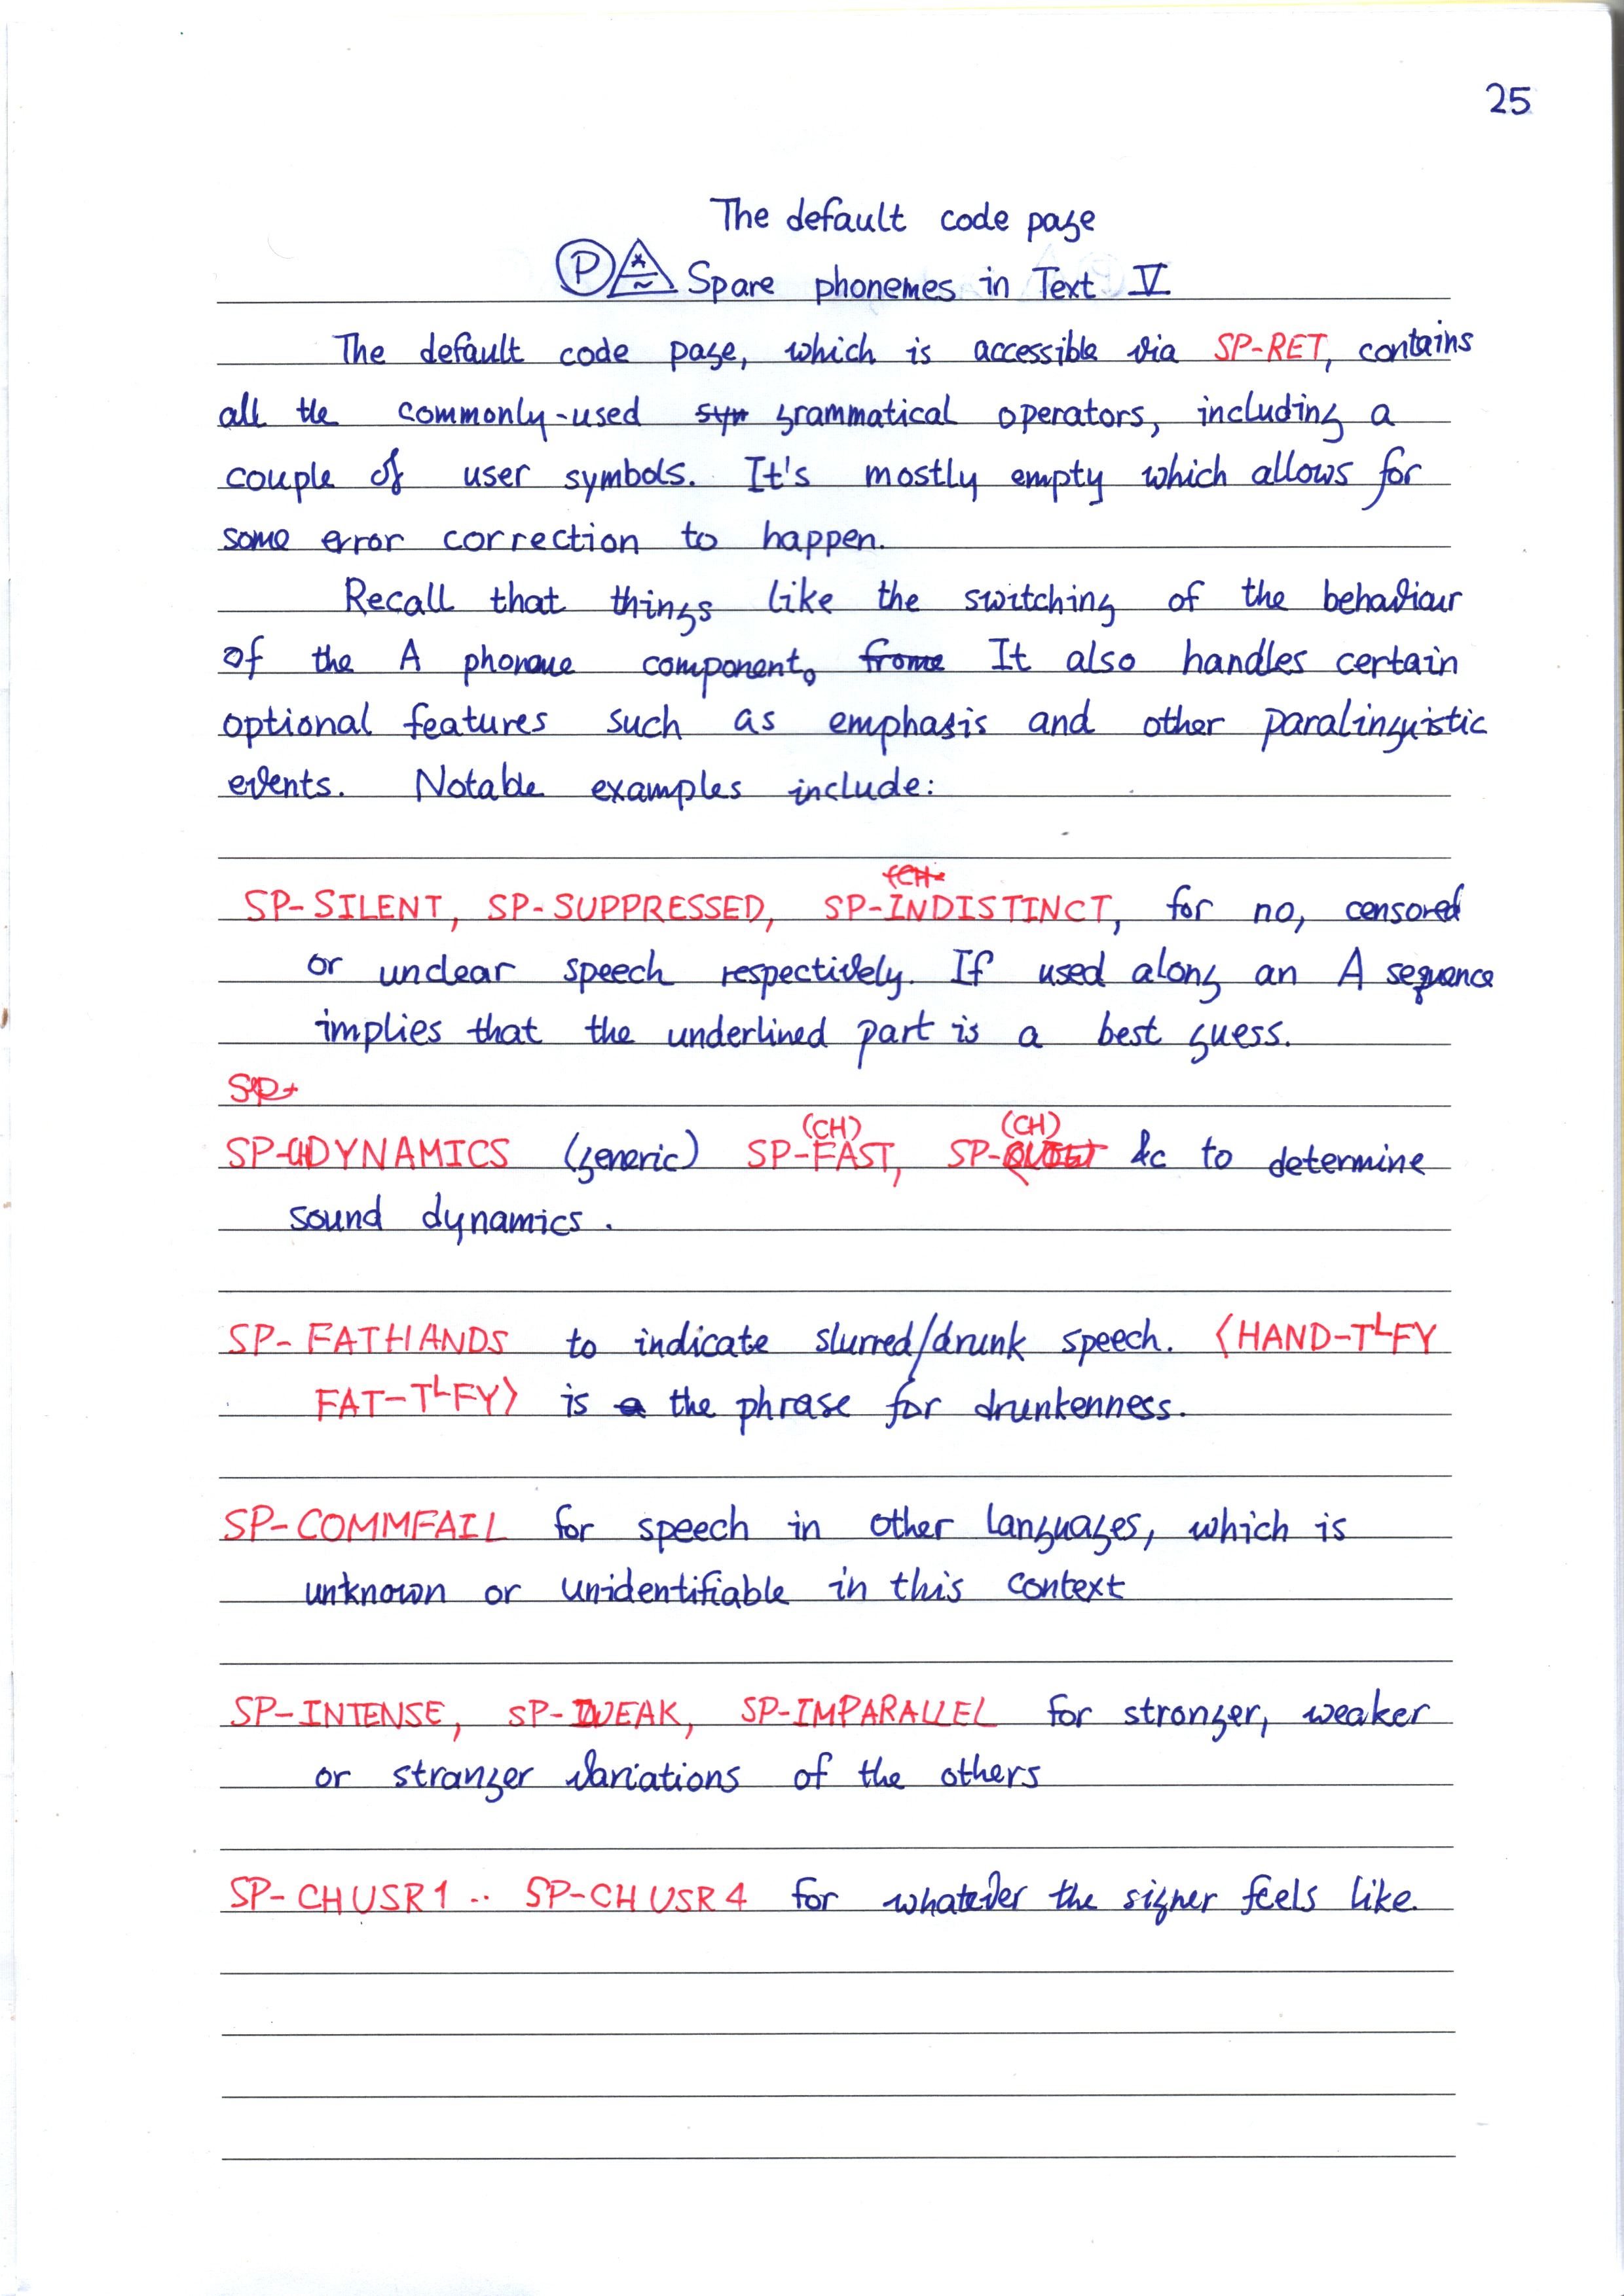 25
The default code page
P Spare phonemes in Text V
The default code page, which is accessible via SP-RET, contains
all the commonly-used grammatical operators, including a
couple of user symbols. It's mostly empty which allows for
some error correction to happen.
Recall that things like the switching of the behaviour
of the A phoneme component. It also handles certain
optional features such as emphasis and other paralinguistic
events. Notable examples include:
SP-SILENT, SP-SUPPRESSED, SP-INDISTINCT, for no, censored
or unclear speech respectively. If used along an A sequence
implies that the underlined part is a best guess.
SP-CHDYNAMICS (generic) SP-(CH)FAST, SP-(CH)QUIET &c to determine
sound dynamics.
SP-FATHANDS to indicate slurred/drunk speech. ⟨HAND-TᴸFY
FAT-TᴸFY⟩ is the phrase for drunkenness.
SP-COMMFAIL for speech in other languages, which is
unknown or unidentifiable in this context
SP-INTENSE, SP-WEAK, SP-IMPARALLEL for stronger, weaker
or stranger variations of the others
SP-CHUSR1 .. SP-CHUSR4 for whatever the signer feels like.